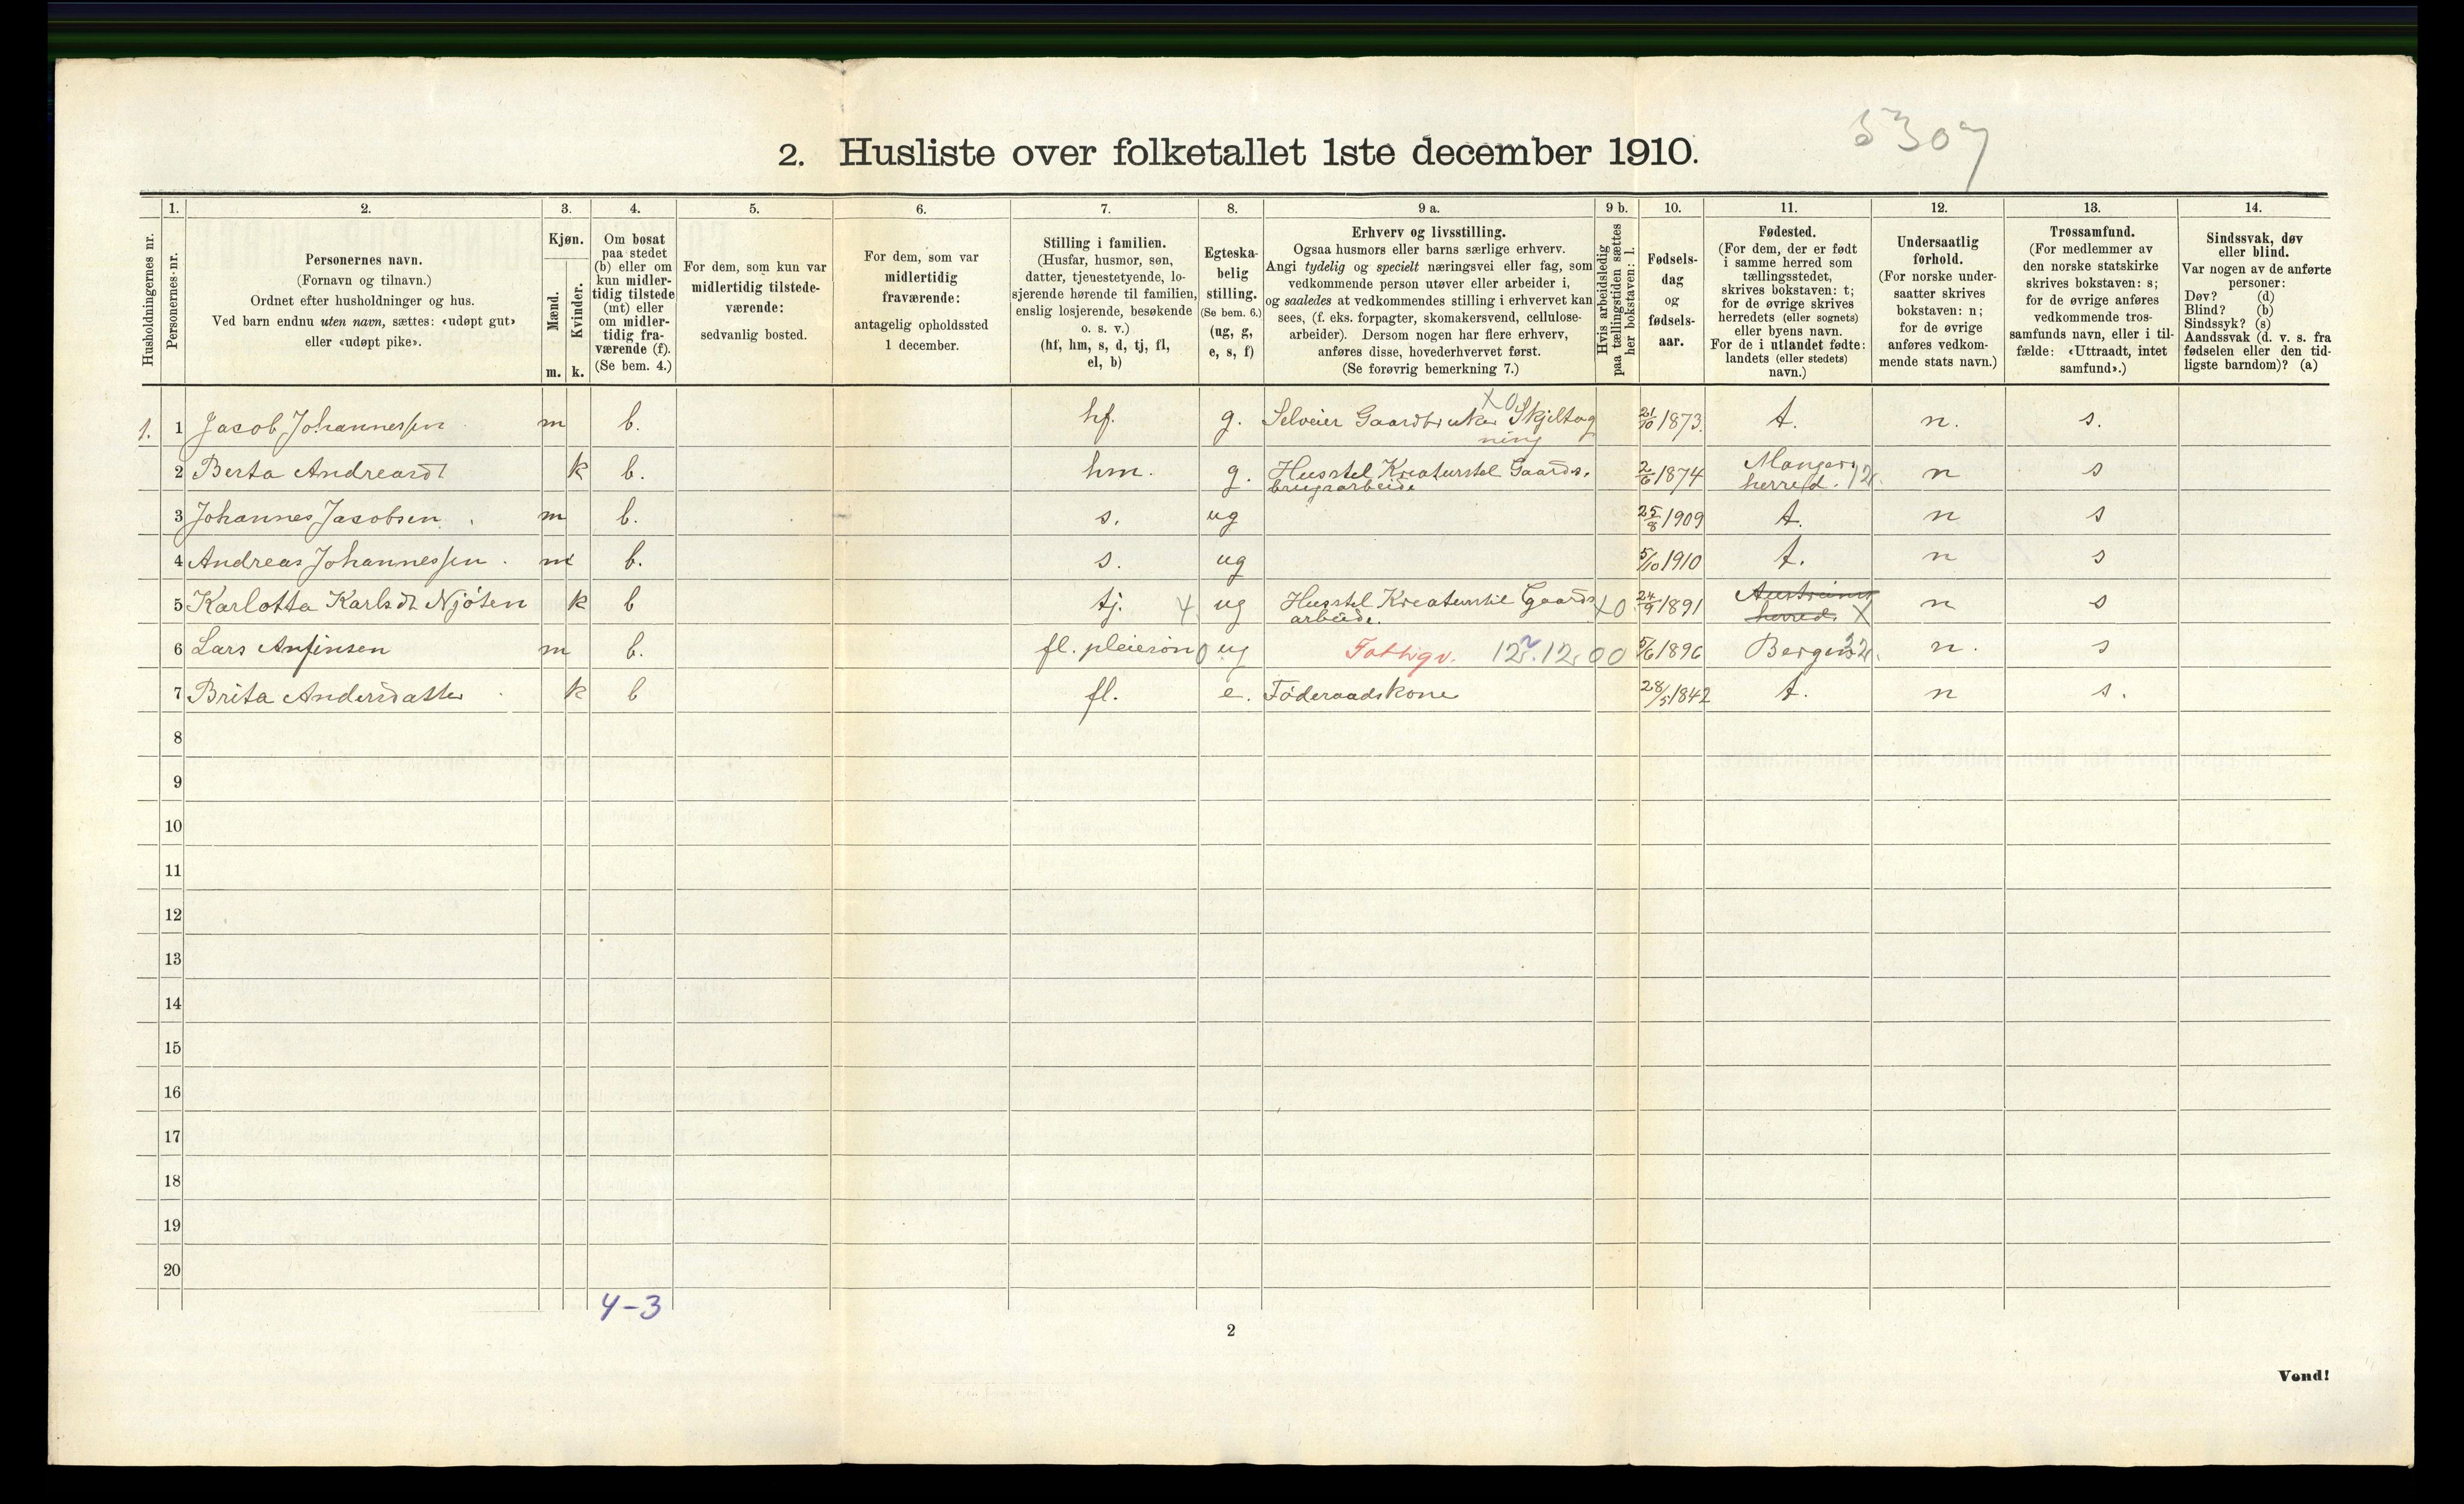 5307
2. Husliste over folketallet 1ste december 1910.
Husholdningernes nr.
1. Personernes nr.
2. Personernes navn.
(Fornavn og tilnavn.)
Ordnet efter husholdninger og hus.
Ved barn endnu uten navn, sættes: «udøpt gut»
eller «udøpt pike».
3. Kjøn.
Mænd. Kvinder.
m. k.
4. Om bosat
paa stedet
(b) eller om
kun midler-
tidig tilstede
(mt) eller
om midler-
tidig fra-
værende (f).
(Se bem. 4.)
5. For dem, som kun var
midlertidig tilstede-
værende:
sedvanlig bosted.
6. For dem, som var
midlertidig
fraværende:
antagelig opholdssted
1 december.
7. Stilling i familien.
(Husfar, husmor, søn,
datter, tjenestetyende, lo-
sjerende hørende til familien,
enslig losjerende, besøkende
o. s. v.)
(hf, hm, s, d, tj, fl,
el, b)
8. Egteska-
belig
stilling.
(Se bem. 6.)
(ug, g,
e, s, f)
9 a. Erhverv og livsstilling.
Ogsaa husmors eller barns særlige erhverv.
Angi tydelig og specielt næringsvei eller fag, som
vedkommende person utøver eller arbeider i,
og saaledes at vedkommendes stilling i erhvervet kan
sees, (f. eks. forpagter, skomakersvend, cellulose-
arbeider). Dersom nogen har flere erhverv,
anføres disse, hovederhvervet først.
(Se forøvrig bemerkning 7.)
9 b. Hvis arbeidsledig
paa tællingstiden sættes
her bokstaven: l.
10. Fødsels-
dag
og
fødsels-
aar.
11. Fødested.
(For dem, der er født
i samme herred som
tællingsstedet,
skrives bokstaven: t;
for de øvrige skrives
herredets (eller sognets)
eller byens navn.
For de i utlandet fødte:
landets (eller stedets)
navn.)
12. Undersaatlig
forhold.
(For norske under-
saatter skrives
bokstaven: n;
for de øvrige
anføres vedkom-
mende stats navn.)
13. Trossamfund.
(For medlemmer av
den norske statskirke
skrives bokstaven: s;
for de øvrige anføres
vedkommende tros-
samfunds navn, eller i til-
fælde: «Uttraadt, intet
samfund».)
14. Sindssvak, døv
eller blind.
Var nogen av de anførte
personer:
Døv? (d)
Blind? (b)
Sindssyk? (s)
Aandssvak (d. v. s. fra
fødselen eller den tid-
ligste barndom)? (a)
1. 1 Jacob Johannessen m b. hf. g. Selveier Gaardbruker Skjeltag X0 21/10 1873. t. n. s.
ning
2 Berta Andreasdt k b. hm. g. Husstel Kreaturstel Gaards. 2/6 1874 Mangers n s
brugsarbeide herred. 12.
3 Johannes Jacobsen m b. s. ug 25/8 1909 t. n s
4 Andreas Johannessen m b. s. ug 5/10 1910 t. n s
5 Karlotta Karlsdt Njøten k b tj. 4 ug Husstel Kreaturstil Gaards X0 24/9 1891 n s
arbeide. herred X
6 Lars Anfinsen m b. fl. pleiesøn 0 ug Fattigv. 12. 12. 00 5/6 1896 Bergen 32. n. s
7 Brita Andersdatter k b fl. e. Føderaadskone 28/5 1842 t. n s.
8
9
10
11
12
13
14
15
16
17
18
19
20
4-3
2
Vend!